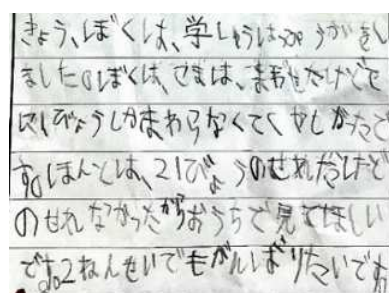 きょう、ぼくは、学しゅうはっぴょうかいをし
ました。ぼくは、こまは、まわせたけどで
にびょうしかまわらなくてくやしかったで
す。ほんとは、21びょうのせれたけど
のせれなかったからおうちで見てほしい
です。2ねんせいでもがんばりたいです